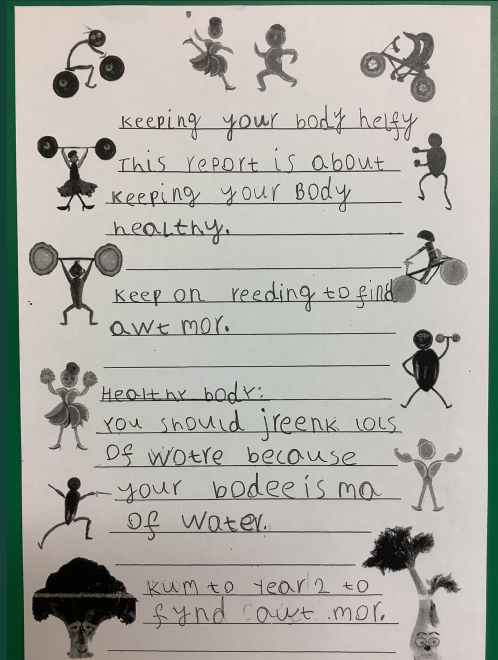 Keeping your body helfy
This report is about
Keeping your Body
healthy.
Keep on reeding to find
awt mor.
Healthy body:
You should jreenk lots
Of wotre because
your bodee is ma
Of water.
Kum to Year 2 to
fynd awt mor.